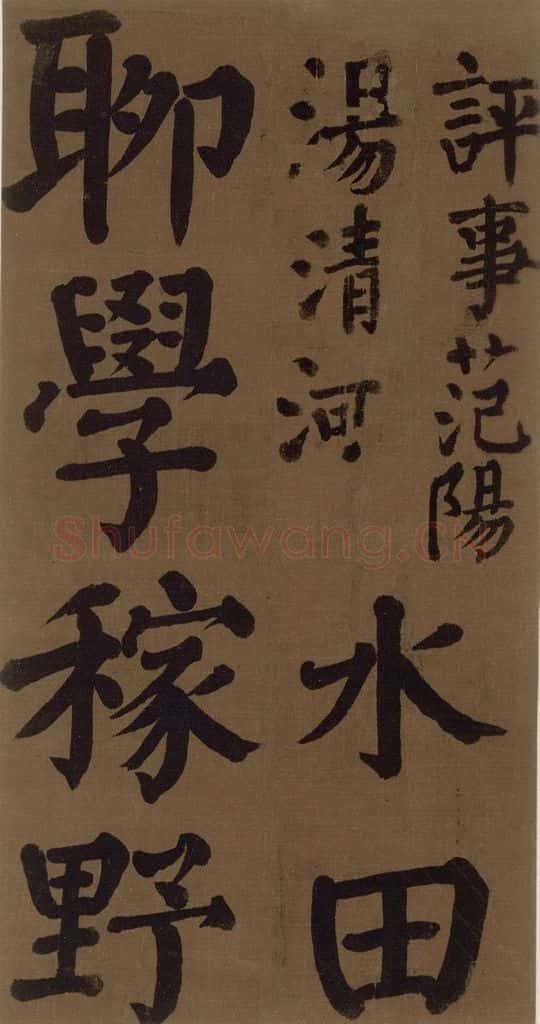 評事范陽
湯清河
水田
聊學稼野
Shufawang.cn